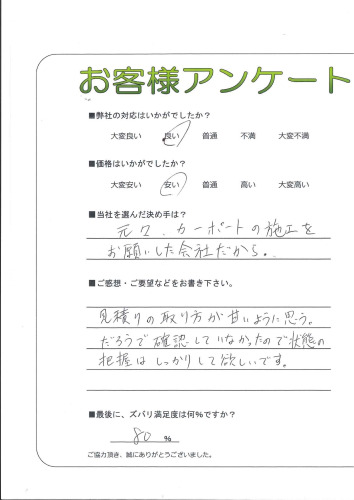 お客様アンケート
■弊社の対応はいかがでしたか?
大変良い 良い 普通 不満 大変不満
■価格はいかがでしたか?
大変安い 安い 普通 高い 大変高い
■当社を選んだ決め手は?
元々、カーポートの施工を
お願いした会社だから。
■ご感想・ご要望などをお書き下さい。
見積りの取り方が甘いように思う。
だろうで確認していなかったので状態の
把握はしっかりして欲しいです。
■最後に、ズバリ満足度は何%ですか?
80 %
ご協力頂き、誠にありがとうございました。